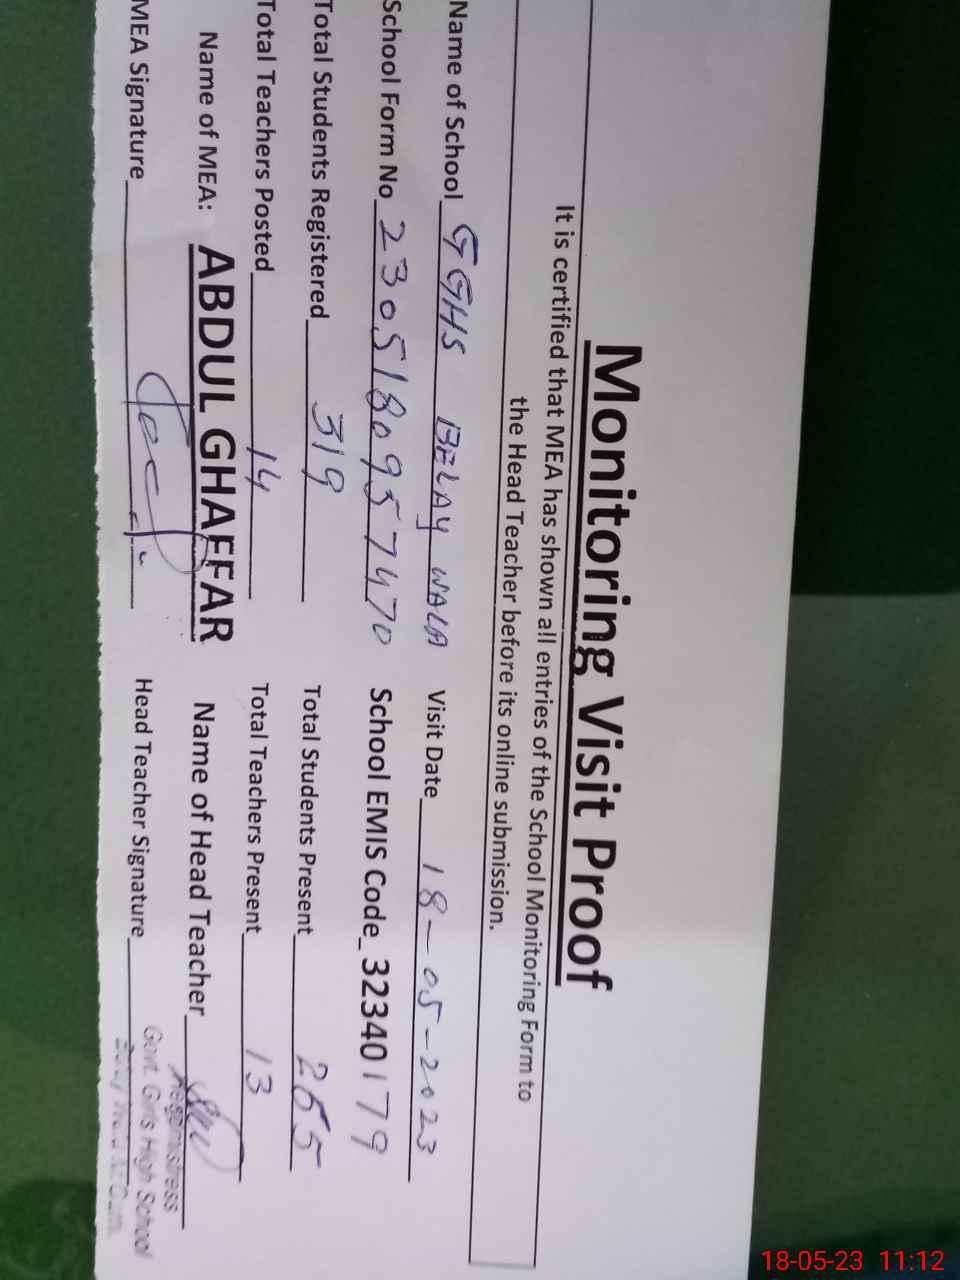 Monitoring Visit Proof
It is certified that MEA has shown all entries of the School Monitoring Form to
the Head Teacher before its online submission.
Name of School GGHS BELAY WALA Visit Date 18-05-2023
School Form No 2305180957470 School EMIS Code 32340179
Total Students Registered 319 Total Students Present 265
Total Teachers Posted 14 Total Teachers Present 13
Name of MEA: ABDUL GHAFFAR Name of Head Teacher
MEA Signature Head Teacher Signature
Headmistress
Govt. Girls High School
18-05-23 11:12